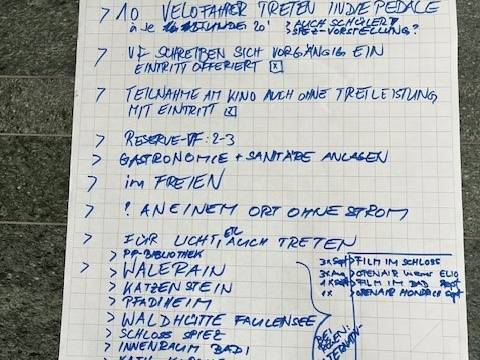 > 10 VELOFAHRER TRETEN IN DIE PEDALE
à je STUNDE 20' > AUCH SCHÜLER?
> SPEZ-VORSTELLUNG?
> VF SCHREIBEN SICH VORGÄNGIG EIN
EINTRITT OFFERIERT x
> TEILNAHME AM KINO AUCH OHNE TRETLEISTUNG
MIT EINTRITT x
> RESERVE-VF: 2-3
> GASTRONOMIE + SANITÄRE ANLAGEN
> im FREIEN
> ? AN EINEM ORT OHNE STROM
> FÜR LICHT, ETC AUCH TRETEN
> PP-BIBLIOTHEK
> WALERAIN
> KATZENSTEIN
> PFADIHEIM
> WALDHÜTTE FAULENSEE
> SCHLOSS SPIEZ
> INNENRAUM BADI
3x Sept > FILM IM SCHLOSS
3x Aug > OPENAIR
1x Sept > FILM IM BAD Sept
1x > OPENAIR
BEI